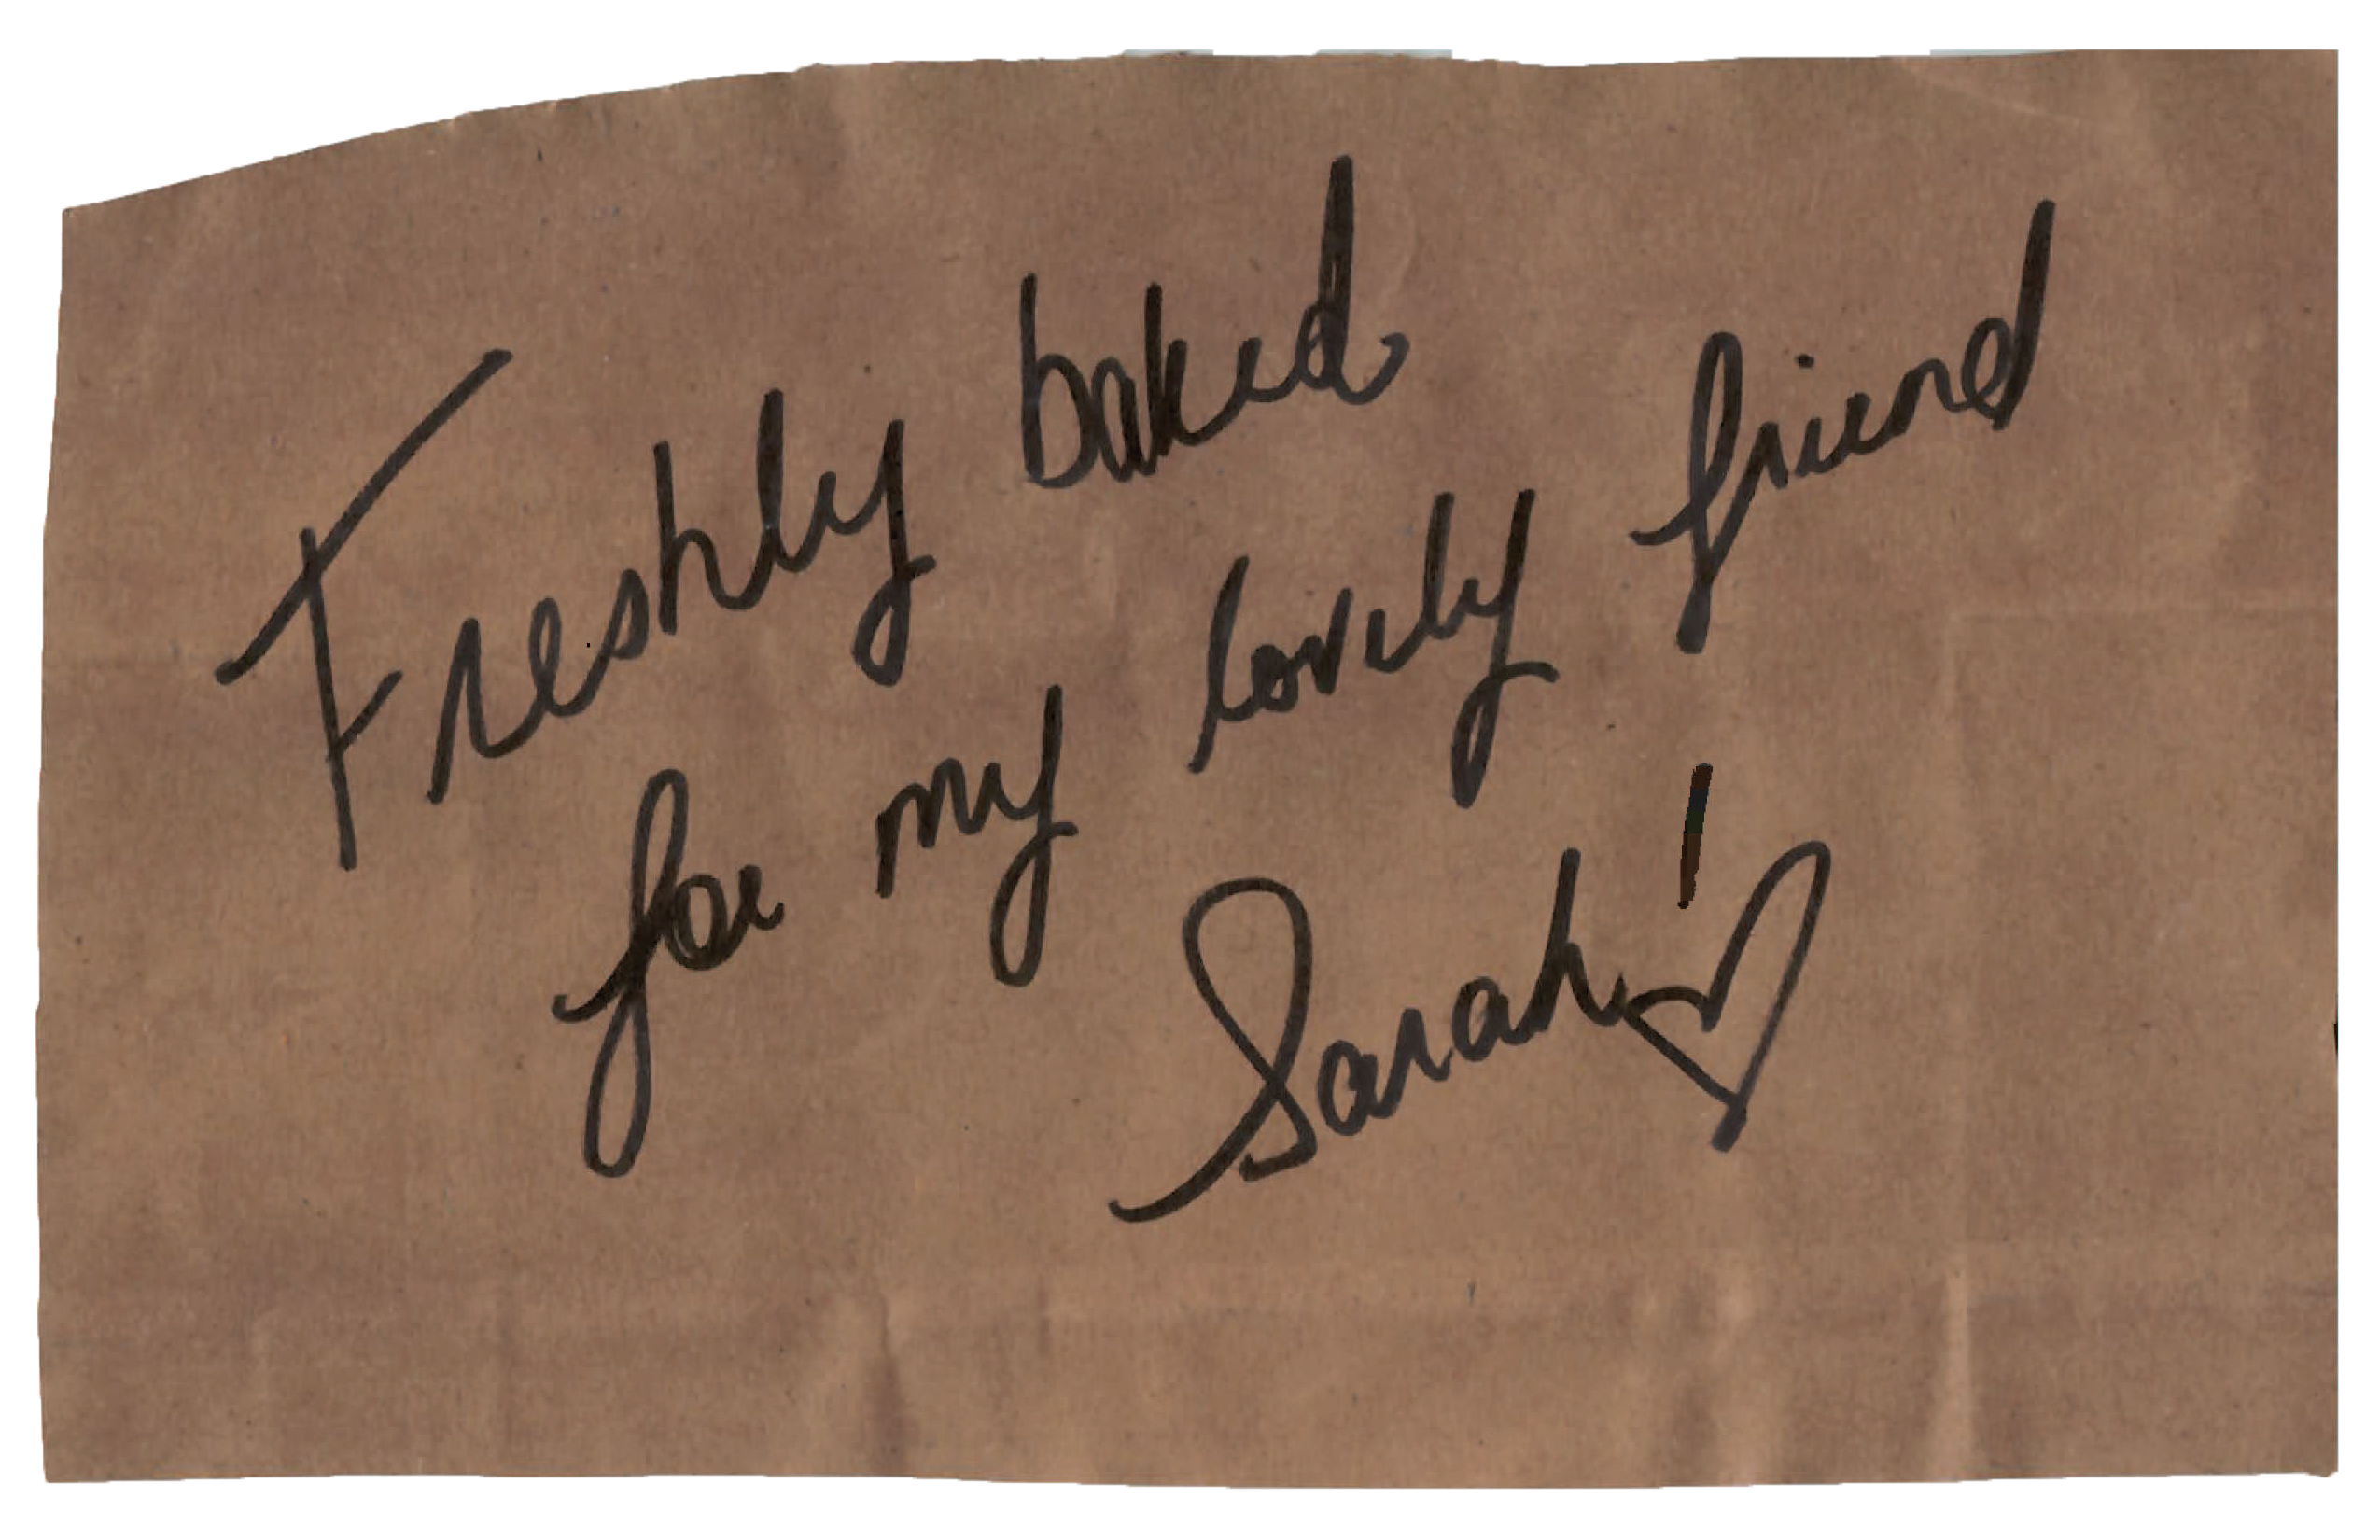 Freshly baked
for my lovely friend
Sarah! ♡